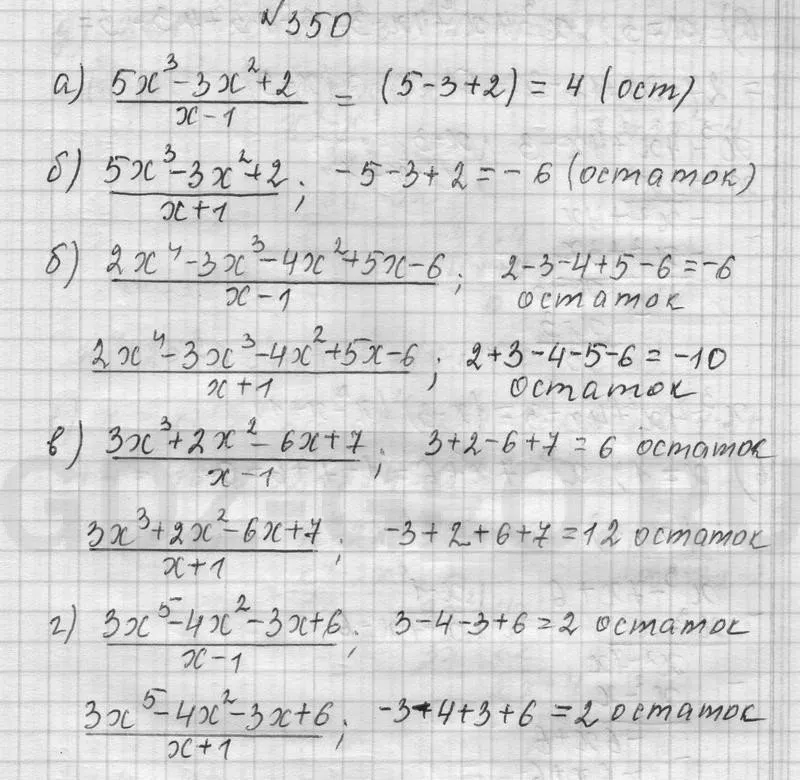 №350
а) 5x³-3x²+2 / x-1 = (5-3+2) = 4 (ост)
б) 5x³-3x²+2 / x+1 ; -5-3+2=-6 (остаток)
б) 2x⁴-3x³-4x²+5x-6 / x-1 ; 2-3-4+5-6=-6
остаток
2x⁴-3x³-4x²+5x-6 / x+1 ; 2+3-4-5-6=-10
остаток
в) 3x³+2x²-6x+7 / x-1 ; 3+2-6+7=6 остаток
3x³+2x²-6x+7 / x+1 ; -3+2+6+7=12 остаток
г) 3x⁵-4x²-3x+6 / x-1 ; 3-4-3+6=2 остаток
3x⁵-4x²-3x+6 / x+1 ; -3-4+3+6=2 остаток